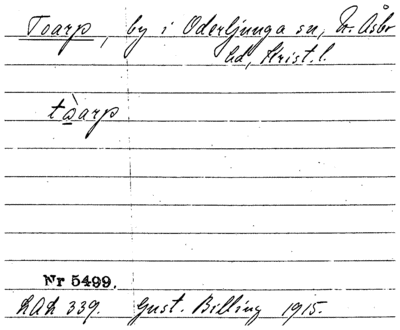 Toarp, by i Oderljunga sn, N. Åsbo
hd, Krist. l.
tòarp
Nr 5499.
LAL 339. Gust. Billing 1915.